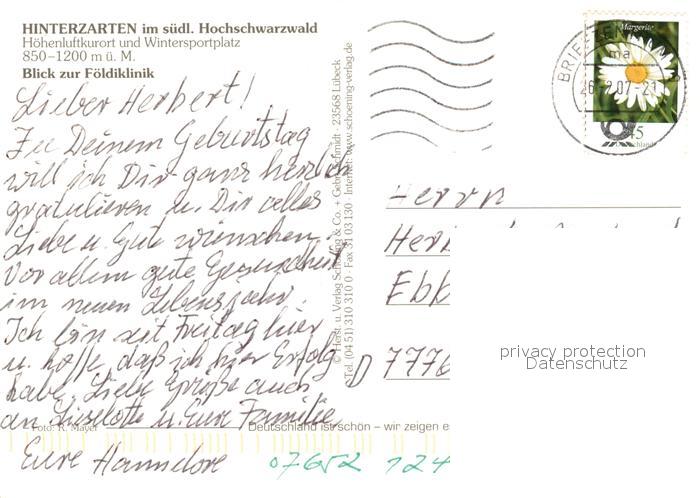 HINTERZARTEN im südl. Hochschwarzwald
Höhenluftkurort und Wintersportplatz
850–1200 m ü. M.
Blick zur Földiklinik
Lieber Herbert!
Zu Deinem Geburtstag
will ich Dir ganz herzlich
gratulieren u. Dir alles
Liebe u. Gute wünschen.
Vor allem gute Gesundheit
im neuen Lebensjahr.
Ich bin seit Freitag hier
u. hoffe, daß ich hier Erfolg
habe. Liebe Grüße auch
an Lieselotte u. Eure Familie
Eure Hannelore
07652 124
Foto: R. Mayer
Deutschland ist schön – wir zeigen e
© Herst. u. Verlag Schöning & Co. + Gebr. Schmidt · 23568 Lübeck
Tel. (04 51) 310 310 0 · Fax 31 03 130 · Internet: www.schoening-verlag.de
Margerite
45
Deutschland
BRIEFZEN
26.2.07-21
Herrn
Her
Ebb
D 7776
privacy protection
Datenschutz